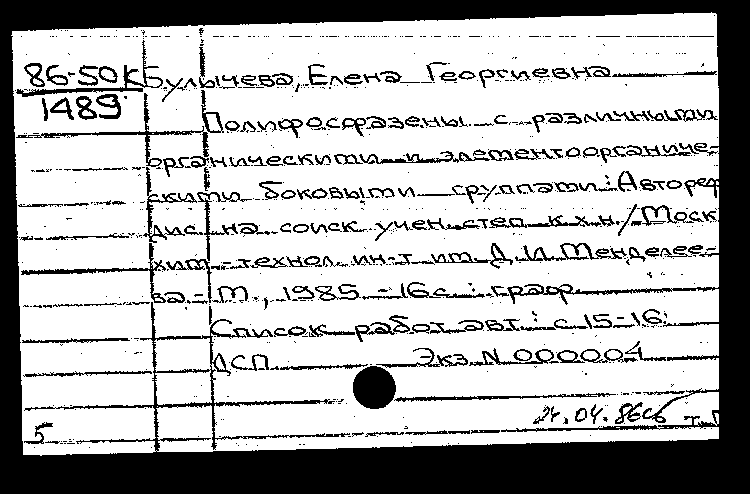 86-50К Булычева, Елена Георгиевна
1489
Полифосфазены с различными
органическими и элементоорганиче-
скими боковыми группами: Автореф
дис на соиск учен. степ к.х.н./Моск
хим-технол. ин-т им Д.И. Менделее-
ва - М., 1985 - 16 с : граф.
Список работ авт.: с 15-16.
ДСП Экз N 000004
24.04.86
5